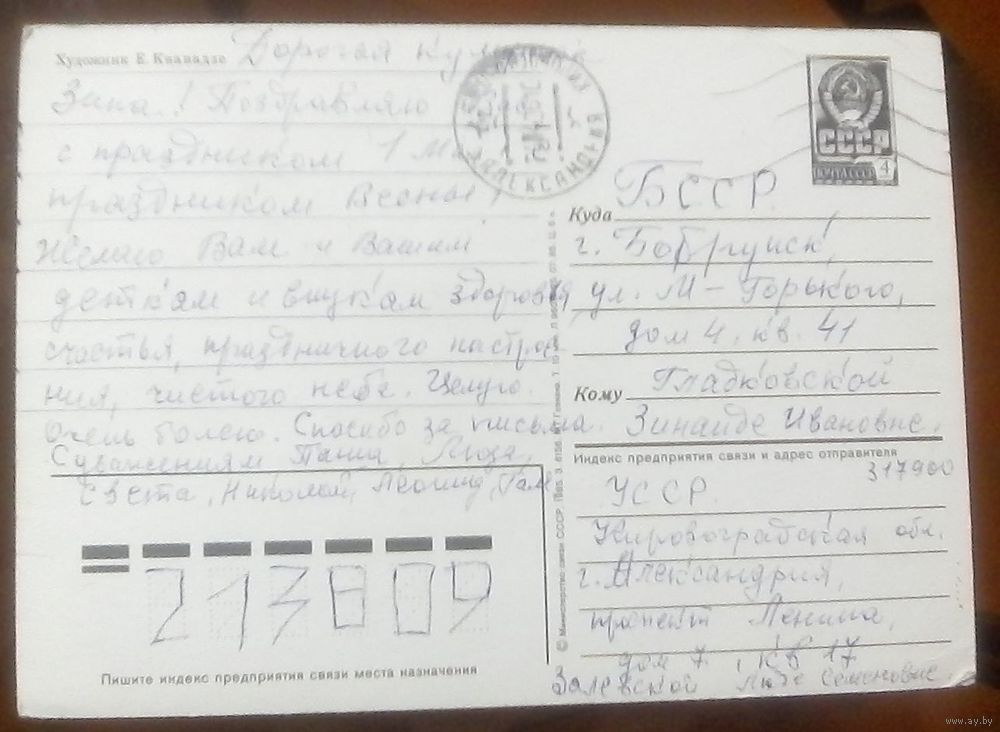 Художник Е. Квавадзе
Дорогая
Зина! Поздравляю
с праздником 1
праздником Весны,
Желаю Вам и Вашим
деткам и внукам здоровья,
счастья, праздничного
чистого неба. Целую.
Очень болею. Спасибо за письма.
С уважением Паша, Люда,
Света, Николой, Леонид,
СССР
4
АЛЕКСАНДРИЯ
Куда БССР
г. Бобруйск,
ул. М-Горького,
дом 4, кв. 41
Кому Гладковской
Зинаиде Ивановне.
Индекс предприятия связи и адрес отправителя
317900
УССР
Кировоградская обл.
г. Александрия,
проспект Ленина,
дом 7, кв 17
Залевской Семеновне.
213809
Пишите индекс предприятия связи места назначения
© Министерство связи СССР.
www.ay.by